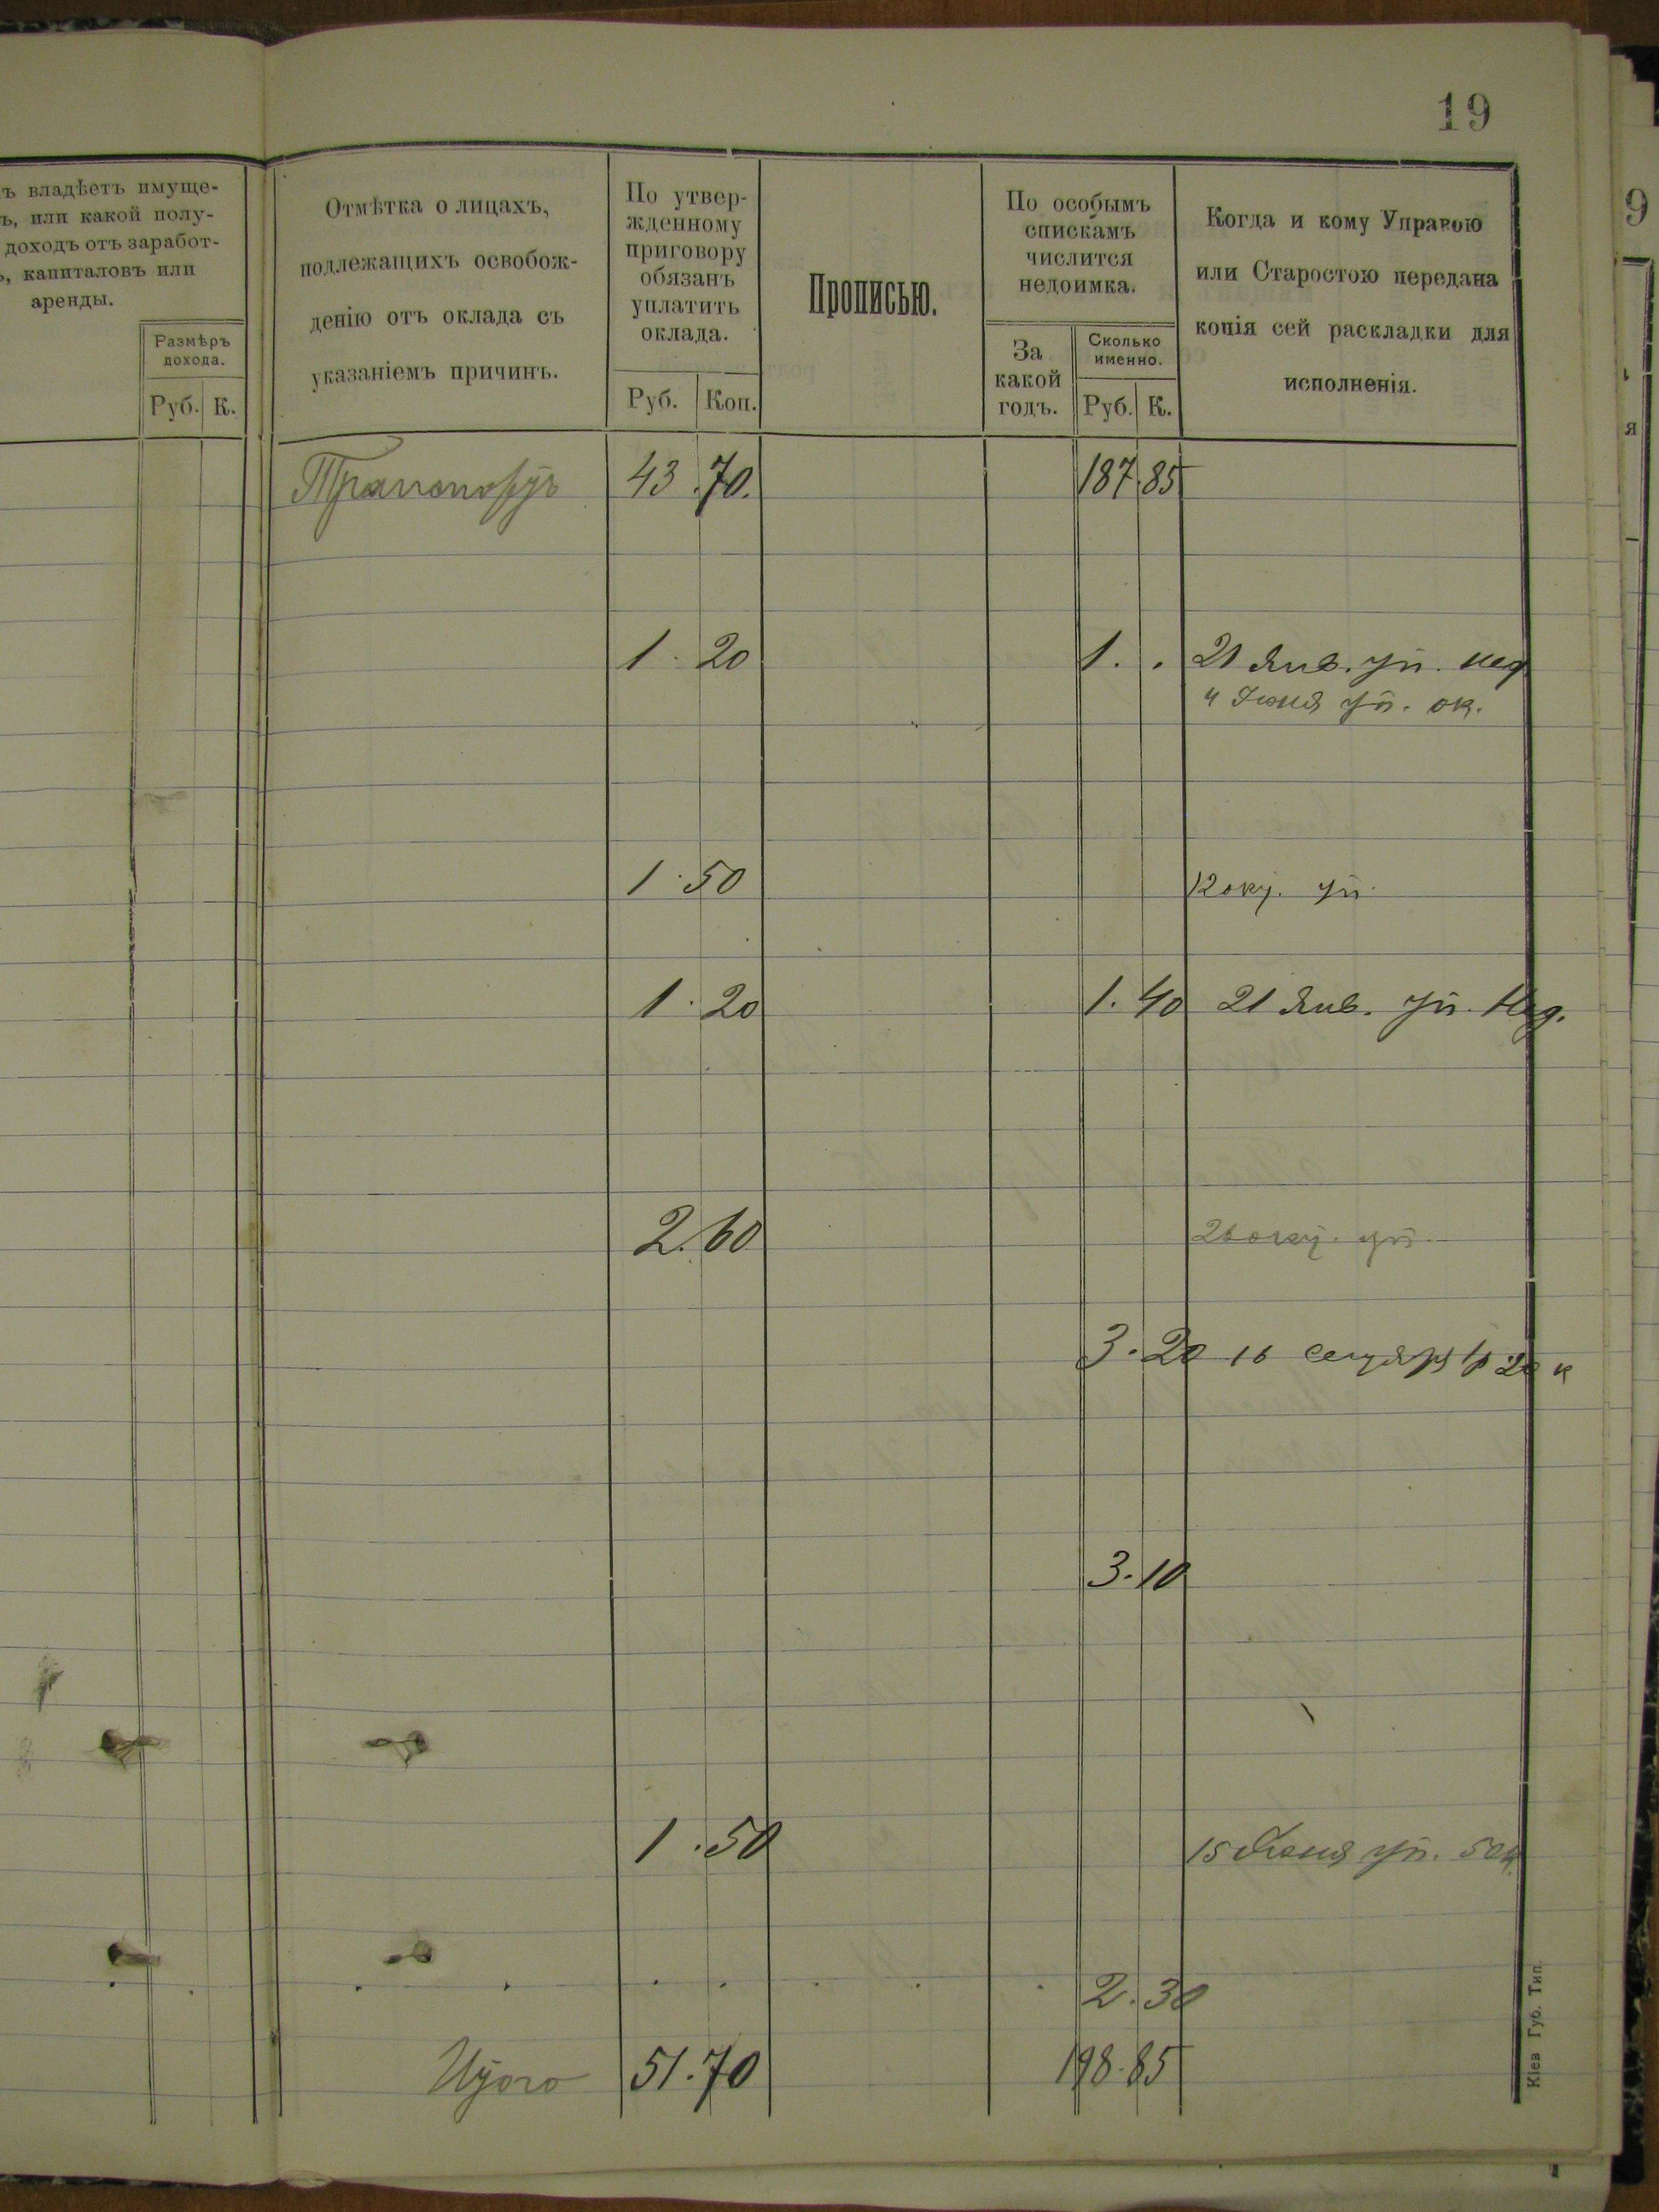 19
ъ владѣетъ имуще-
ъ, или какой полу-
доходъ отъ заработ-
ъ, капиталовъ или
аренды.
Размѣръ
дохода.
Руб. К.
Отмѣтка о лицахъ,
подлежащихъ освобож-
денію отъ оклада съ
указаніемъ причинъ.
По утвер-
жденному
приговору
обязанъ
уплатить
оклада.
Руб. Коп.
Прописью.
По особымъ
спискамъ
числится
недоимка.
За
какой
годъ.
Сколько
именно.
Руб. К.
Когда и кому Управою
или Старостою передана
копія сей раскладки для
исполненія.
9
я
Транспортъ 43.70. 187.85
1.20 1. . 21 Янв. уп. нед
4 Іюня уп. ок.
1.50 12 окт. уп.
1.20 1.40 21 Янв. уп. Нед.
2.60 26 окт. уп.
3.20 16 сентяр 1р 20 к
3.10
1.50 15 Іюня уп. 50к.
2.30
Итого 51.70 198.85
Кіев Губ. Тип.